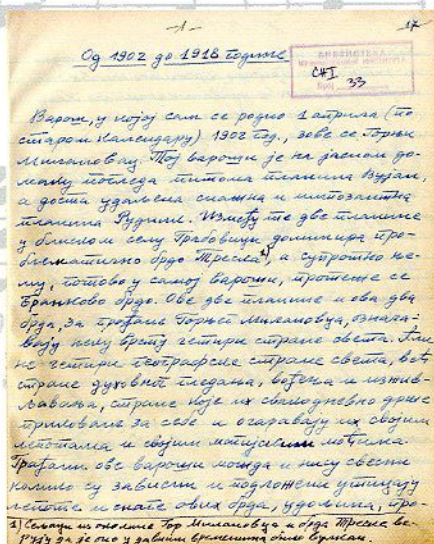 -1-
17
Од 1902 до 1918 године
БИБЛИОТЕКА
СНI
Број 33
Варош, у којој сам се родио 1 априла (по
старом календару) 1902 год., зове се Горњи
Милановац. Тој вароши је на јасном до-
маку последа питома планина Вујан,
а доста удаљена снажна и импозантна
планина Рудник. Између те две планине
у блиском селу Грабовици доминира про-
блематично брдо Треска 1), а супротно ње-
му, готово у самој вароши, протеже се
Бранково брдо. Ове две планине и ова два
брда, за грађане Горњег Милановца, означа-
вају неку врсту четири стране света. Али
не четири географске стране света, већ
стране духовног гледања, вођења и изжив-
љавања, стране које их свакодневно држе
приковане за себе и очаравају их својим
лепотама и својим моћима.
Грађани ове вароши можда и нису свесни
колико су зависни и подложени утицају
лепоте и снаге ових брда, удолина, про-
1) Сељаци из околине Гор. Милановца и брда Треске ве-
рују да је оно у давним временима било вулкан.